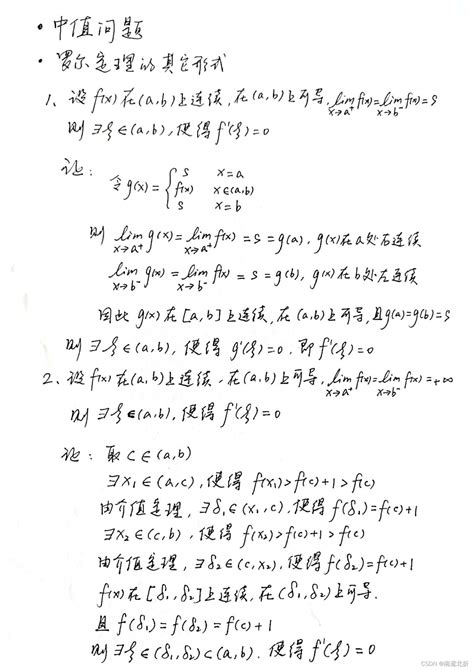 ·中值问题
·罗尔定理的其它形式
1、设f(x)在(a,b)上连续,在(a,b)上可导,lim x→a⁺ f(x)=lim x→b⁻ f(x)=s
则∃ξ∈(a,b),使得f'(ξ)=0
证:
令g(x)={ s x=a
f(x) x∈(a,b)
s x=b
则 lim x→a⁺ g(x)=lim x→a⁺ f(x)=s=g(a),g(x)在a处右连续
lim x→b⁻ g(x)=lim x→b⁻ f(x)=s=g(b),g(x)在b处左连续
因此g(x)在[a,b]上连续,在(a,b)上可导,且g(a)=g(b)=s
则∃ξ∈(a,b),使得g'(ξ)=0,即f'(ξ)=0
2、设f(x)在(a,b)上连续,在(a,b)上可导,lim x→a⁺ f(x)=lim x→b⁻ f(x)=+∞
则∃ξ∈(a,b),使得f'(ξ)=0
证:取c∈(a,b)
∃x₁∈(a,c),使得f(x₁)>f(c)+1>f(c)
由介值定理,∃δ₁∈(x₁,c),使得f(δ₁)=f(c)+1
∃x₂∈(c,b),使得f(x₂)>f(c)+1>f(c)
由介值定理,∃δ₂∈(c,x₂),使得f(δ₂)=f(c)+1
f(x)在[δ₁,δ₂]上连续,在(δ₁,δ₂)上可导.
且f(δ₁)=f(δ₂)=f(c)+1
则∃ξ∈(δ₁,δ₂)⊂(a,b).使得f'(ξ)=0